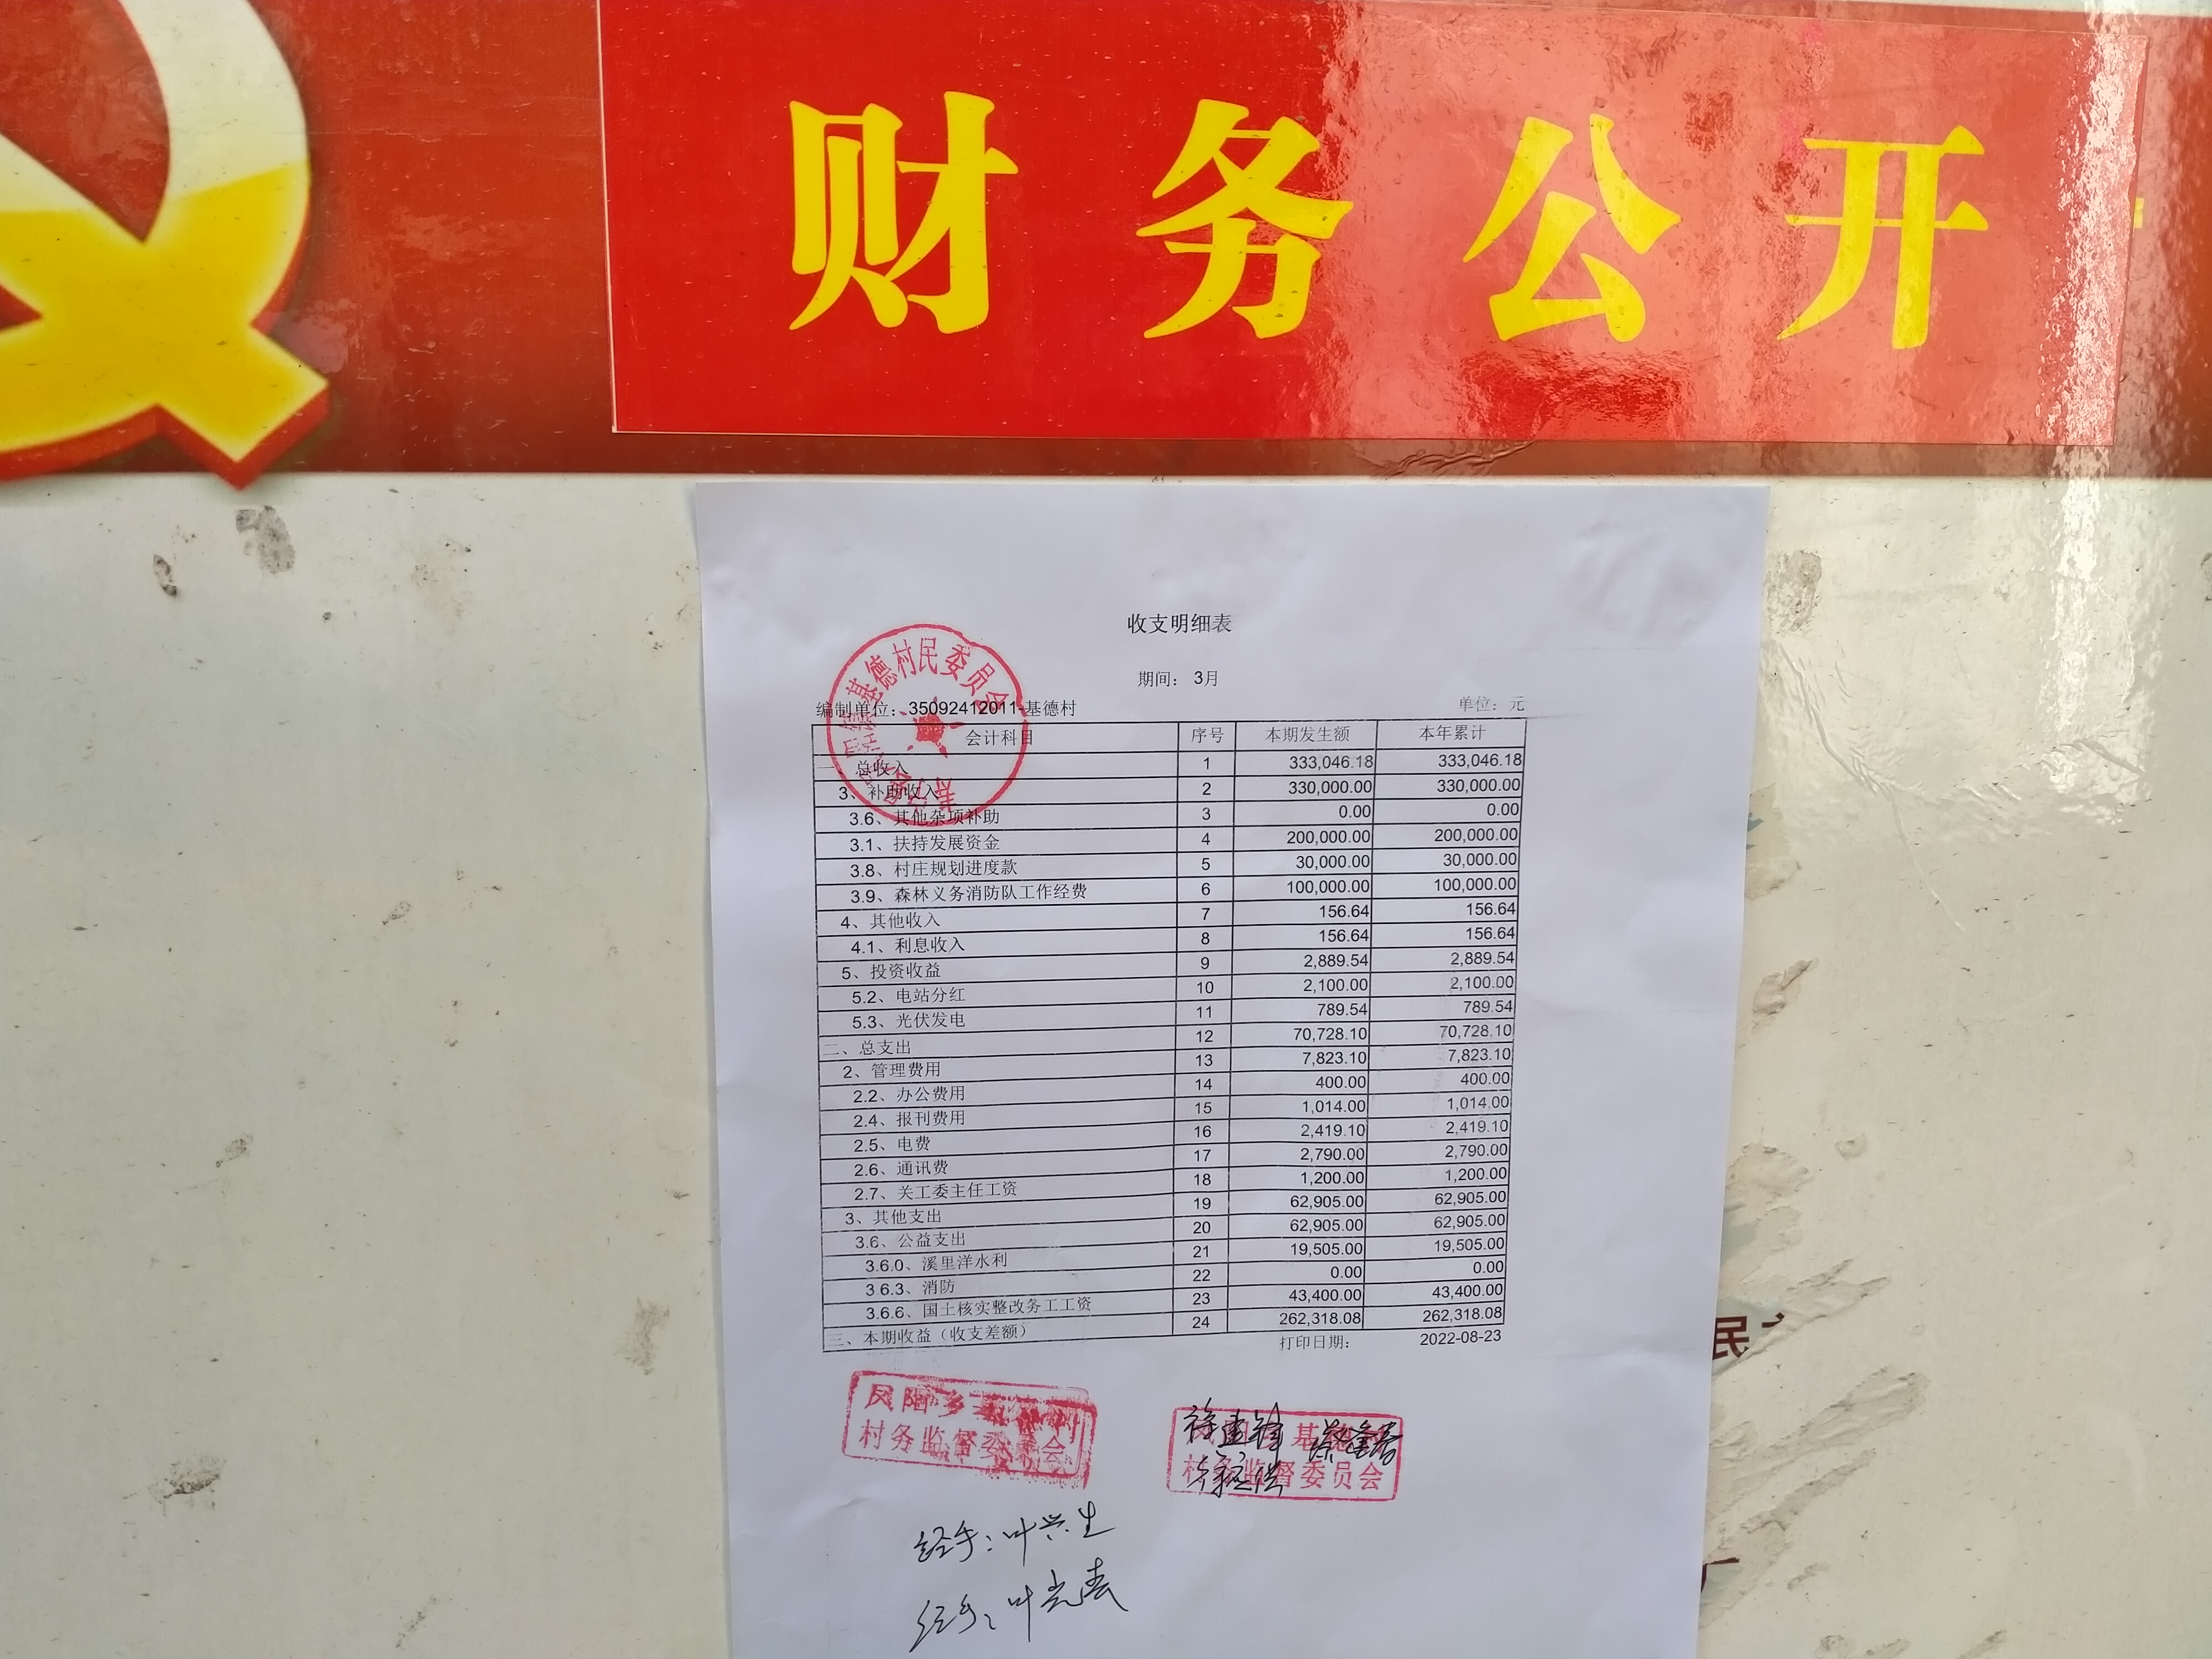 财务公开
收支明细表
期间： 3月
编制单位：35092412011-基德村 单位：元
会计科目 序号 本期发生额 本年累计
一、总收入 1 333,046.18 333,046.18
3、补助收入 2 330,000.00 330,000.00
3.6、其他杂项补助 3 0.00 0.00
3.1、扶持发展资金 4 200,000.00 200,000.00
3.8、村庄规划进度款 5 30,000.00 30,000.00
3.9、森林义务消防队工作经费 6 100,000.00 100,000.00
4、其他收入 7 156.64 156.64
4.1、利息收入 8 156.64 156.64
5、投资收益 9 2,889.54 2,889.54
5.2、电站分红 10 2,100.00 2,100.00
5.3、光伏发电 11 789.54 789.54
二、总支出 12 70,728.10 70,728.10
2、管理费用 13 7,823.10 7,823.10
2.2、办公费用 14 400.00 400.00
2.4、报刊费用 15 1,014.00 1,014.00
2.5、电费 16 2,419.10 2,419.10
2.6、通讯费 17 2,790.00 2,790.00
2.7、关工委主任工资 18 1,200.00 1,200.00
3、其他支出 19 62,905.00 62,905.00
3.6、公益支出 20 62,905.00 62,905.00
3.6.0、溪里洋水利 21 19,505.00 19,505.00
3.6.3、消防 22 0.00 0.00
3.6.6、国土核实整改务工工资 23 43,400.00 43,400.00
三、本期收益（收支差额） 24 262,318.08 262,318.08
打印日期： 2022-08-23
基德村民委员会
凤阳乡
村务监督委员会
基德
村务监督委员会
经手：叶兴生
经手：叶光春
民